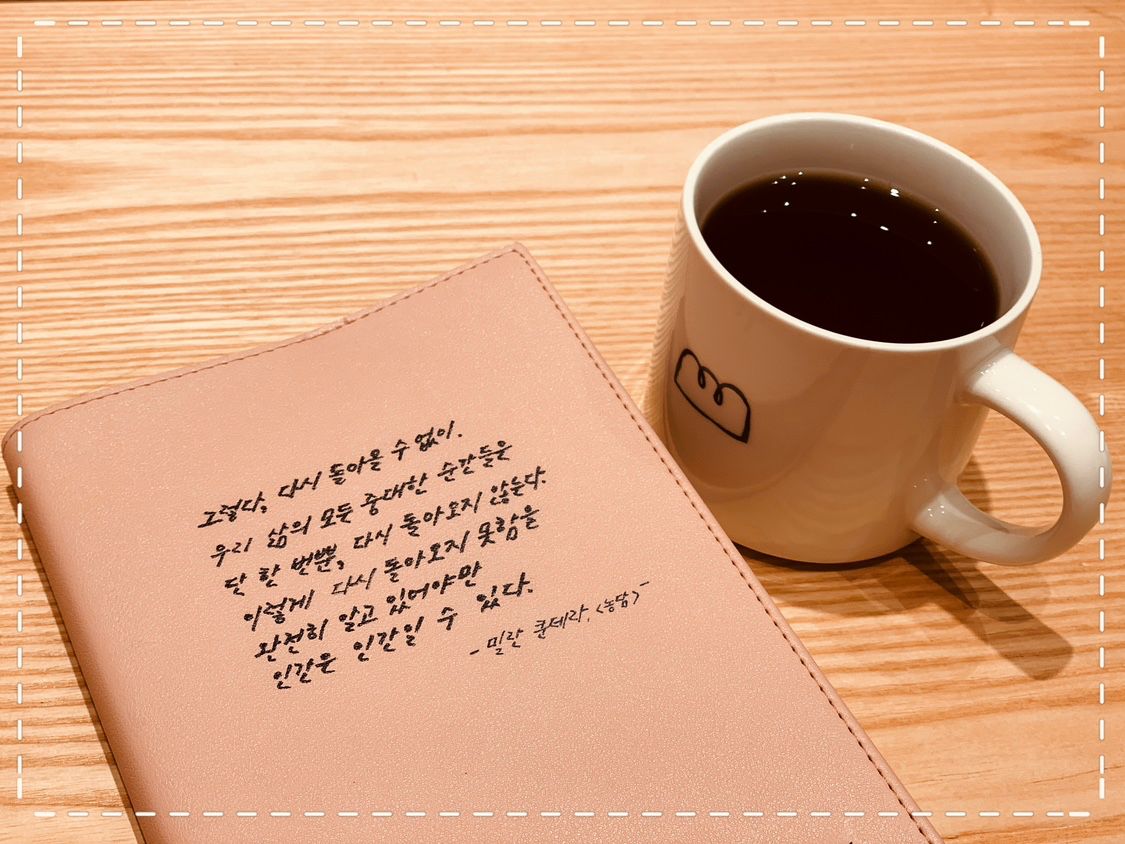 그렇다, 다시 돌아올 수 없이.
우리 삶의 모든 중대한 순간들은
단 한 번뿐, 다시 돌아오지 않는다.
이렇게 다시 돌아오지 못함을
완전히 알고 있어야만
인간은 인간일 수 있다.
- 밀란 쿤데라, <농담> -